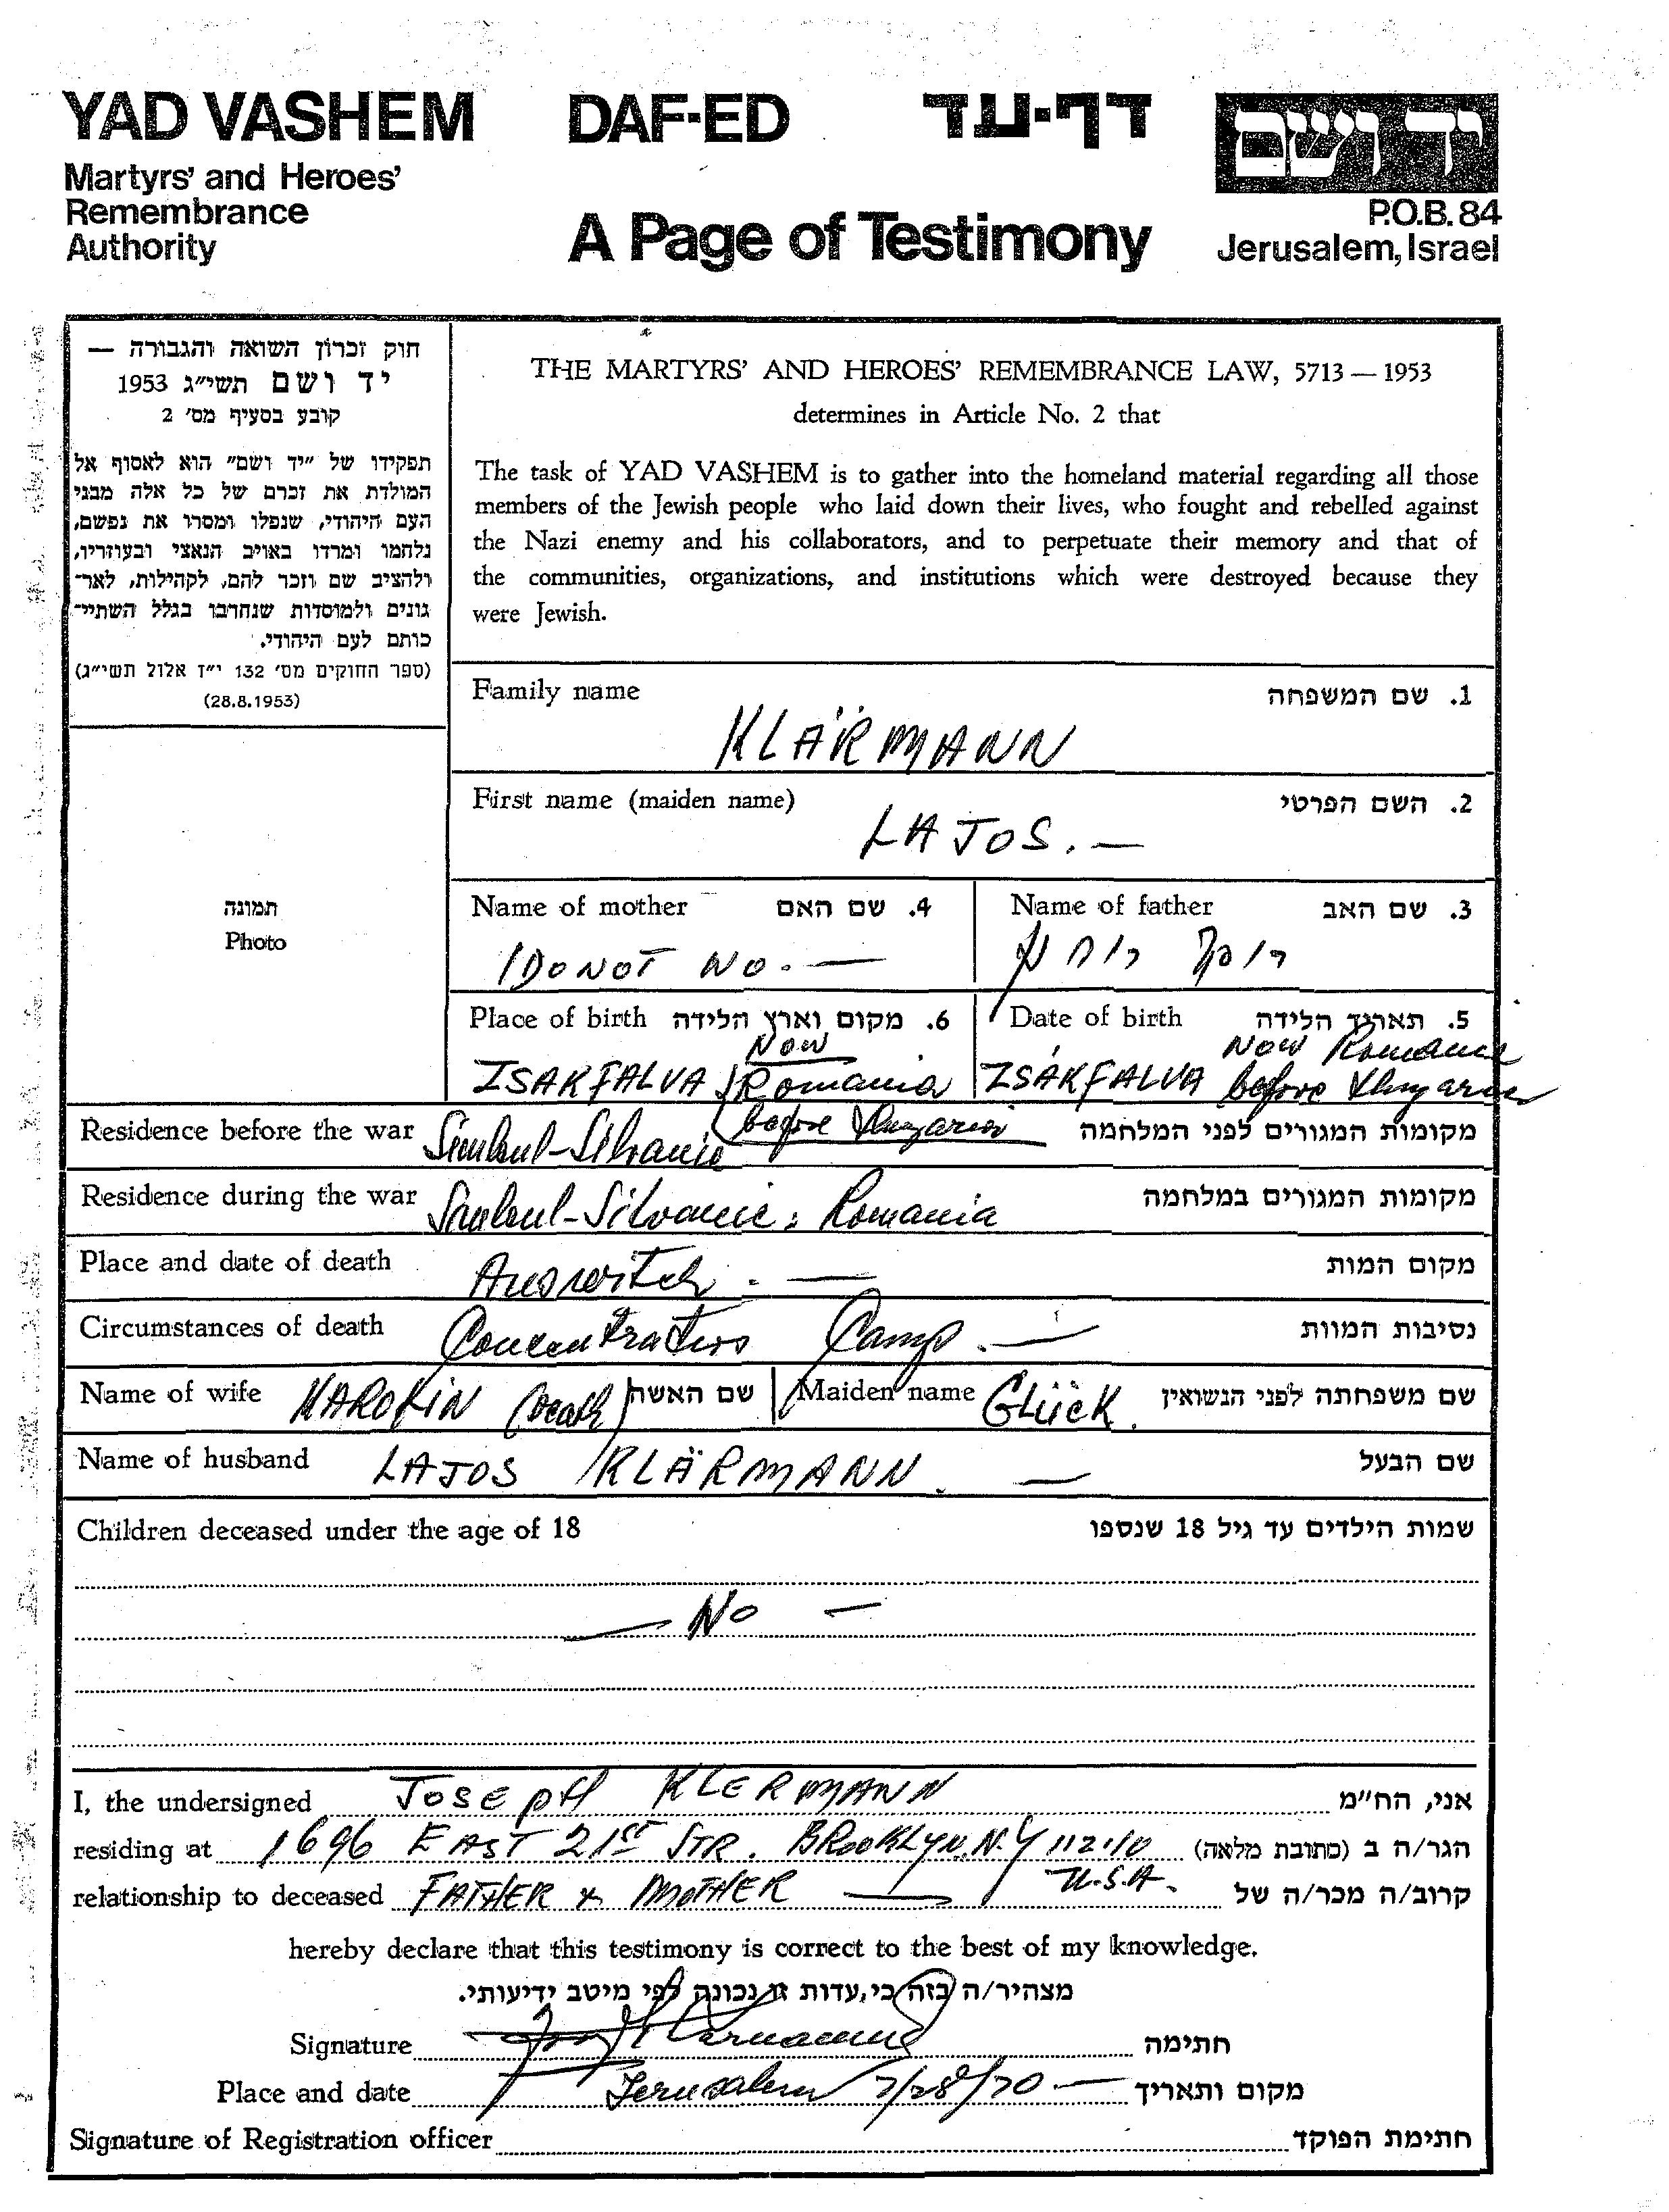 YAD VASHEM DAF-ED דף-עד יד ושם
Martyrs' and Heroes'
Remembrance
Authority
A Page of Testimony
P.O.B. 84
Jerusalem, Israel
חוק זכרון השואה והגבורה —
יד ושם תשי"ג 1953
קובע בסעיף מס' 2
תפקידו של "יד ושם" הוא לאסוף אל
המולדת את זכרם של כל אלה מבני
העם היהודי, שנפלו ומסרו את נפשם,
נלחמו ומרדו באויב הנאצי ובעוזריו,
ולהציב שם וזכר להם, לקהילות, לאר־
גונים ולמוסדות שנחרבו בגלל השתיי־
כותם לעם היהודי.
(ספר החוקים מס' 132 י"ז אלול תשי"ג)
(28.8.1953)
תמונה
Photo
THE MARTYRS' AND HEROES' REMEMBRANCE LAW, 5713 — 1953
determines in Article No. 2 that
The task of YAD VASHEM is to gather into the homeland material regarding all those
members of the Jewish people who laid down their lives, who fought and rebelled against
the Nazi enemy and his collaborators, and to perpetuate their memory and that of
the communities, organizations, and institutions which were destroyed because they
were Jewish.
Family name 1. שם המשפחה
KLÄRMANN
First name (maiden name) 2. השם הפרטי
LAJOS. —
Name of mother 4. שם האם
I DO NOT NO. —
Name of father 3. שם האב
Place of birth 6. מקום וארץ הלידה
NOW
ISAKFALVA Romania
before Hungaria
Date of birth 5. תאריך הלידה
NOW Romania
IZSÁKFALVA before Hungaria
Residence before the war מקומות המגורים לפני המלחמה
Residence during the war Romania מקומות המגורים במלחמה
Place and date of death Auswitch. — מקום המות
Circumstances of death Concentration Camp. — נסיבות המוות
Name of wife KAROLIN (Death) שם האשה Maiden name GLÜCK. שם משפחתה לפני הנשואין
Name of husband LAJOS KLÄRMANN. — שם הבעל
Children deceased under the age of 18 שמות הילדים עד גיל 18 שנספו
— No —
I, the undersigned JOSEPH KLERMANN אני, הח"מ
residing at 1696 EAST 21ST STR. BROOKLYN, N.Y 11210 הגר/ה ב (כתובת מלאה)
U.S.A.
relationship to deceased FATHER & MOTHER — קרוב/ה מכר/ה של
hereby declare that this testimony is correct to the best of my knowledge.
מצהיר/ה בזה כי עדות זו נכונה לפי מיטב ידיעותי.
Signature חתימה
Place and date Jerusalem 7/28/70 — מקום ותאריך
Signature of Registration officer חתימת הפוקד